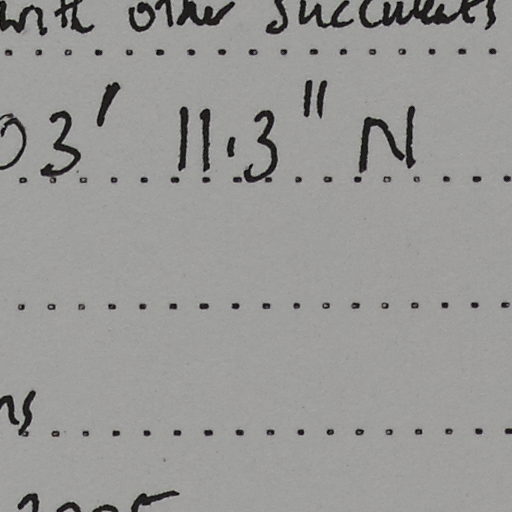 with other succulents
03' 11.3" N
ns
2005